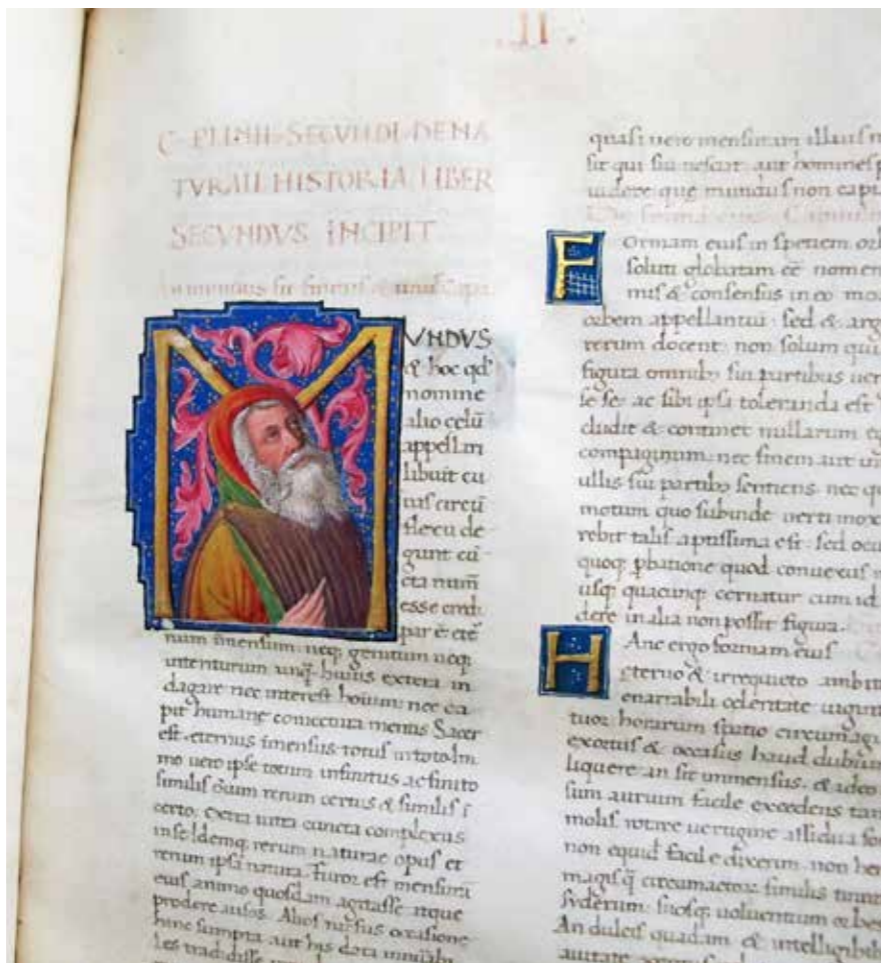 .II.
C PLINII SECVNDI DENA
TVRALI HISTORIA LIBER
SECVNDVS INCIPIT
UNDUS
& hoc qđ
nomine
alio celū
appellari
libuit cu
ius circū
flexu de
gunt cū
cta num̄
esse credi
par ē etē
num īmensum neq; genitum neq;
interiturum unq̄ huius extera in
dagare nec interest hoīum nec ca
pit humane coniectura mentis Sacer
est eternus īmensus totus in toto Im
mo uero ipse totum infinitus ac finito
similis oīum rerum certus & similis ī
certo extra intra cuncta complexus
in se Idemq; rerum naturae opus et
rerum ipsa natura Furor est mensurā
eius animo quosdam agitasse atque
prodere ausos Alios rursus occasione
hinc sumpta aut his data
les tradidisse
quasi uero mensuram illius
sit qui sui nesciat aut homines
uidere que mundus non capi
FORMAM eius in speciem orb
soluti globatam eē nomen
mis & consensus in eo mo
orbem appellantiū sed & arg
rerum docent non solum qui
figura omnibꝫ sui partibus uer
se se ac sibi ipsa toleranda est
cludit & continet nullarum eg
compaginum nec finem aut
ullis sui partibꝫ sentiens nec q
motum quo subinde uerti mox
rebit talis aptissima est sed ocu
quoq; ꝓbatione quod conuexus
usq; quacunq; cernatur cum id
dere in alia non possit figura
HAnc ergo formam eius
eterno & irrequieto ambit
enarrabili celeritate uigint
tuor horarum spatio circumagi
exortus & occasus haud dubium
liquere an sit immensus & ideo
sum aurium facile excedens
molis rotate uertigine assidua so
non equid facile dixerim non her
magis q̄ circumactor similis tinni
syderum suosq; uoluentium orbes
An dulcis quadam & intelligibili